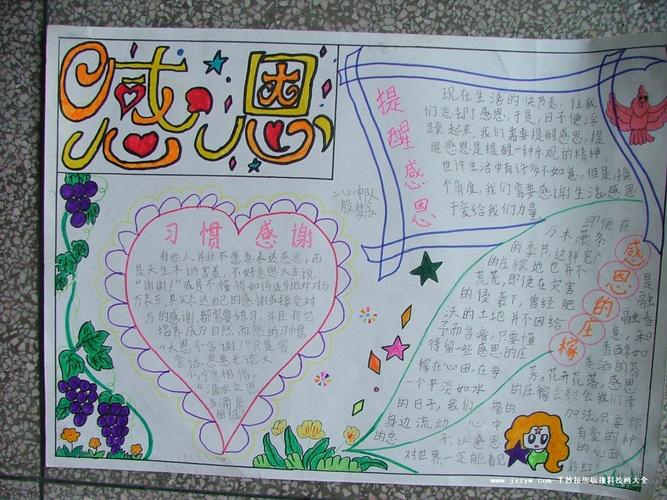 感恩
提醒感恩
现在生活的快节奏，让我
们忘却了感恩，于是，日子便浮
躁起来，我们需要提醒感恩，提
醒感恩是提醒一种乐观的精神，
也许生活中有许多不如意，但是，换
个角度，我们需要感谢生活，感恩
于爱给我们力量
二（2）中队
殷梦
习惯感谢
有些人并非不愿意表达感恩，而
是天生木讷的害羞，不好意思大声说：
“谢谢！”或是不懂得如何适当地对对
方表示，其实表达自己的感谢或接受对
方的感谢都需要练习，并且将它
培养成为自然而然的习惯
“大恩不言谢！”只是官
“滴水之恩
感恩的庄稼
即使在
万木萧条
的季节，这样的
的庄稼地也并不
荒芜，即使在灾害
的侵袭下，曾经肥
沃的土地并不因给
予而贫瘠，只要懂
得留一些感恩的庄
稼在心田，在每
一个平淡如水
的日子，我们
身边流动
的恩
对世界一定能看见
是
融融
香醇如
美酒的芬
芳。花开花落，感恩
的庄稼会教会我们幸
福的加法，只要你
心中有爱的种
子，以感恩的心面
彩虹
www.jxzyw.com